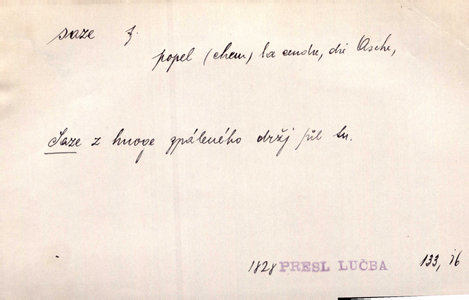 saze f.
popel (chem) la cendre, die Asche,
Saze z hnoge zpáleného držj sůl tu.
1828 PRESL LUČBA 133, 16